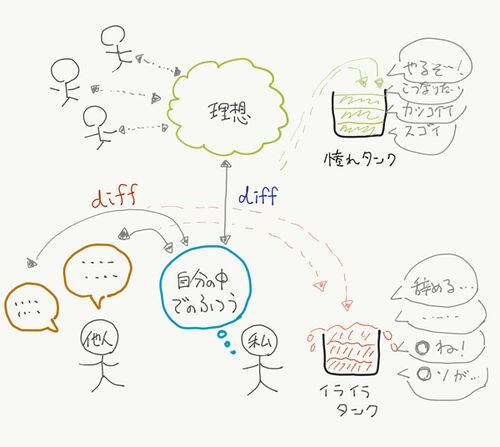 理想
やるぞー!
こうなりたい
カッコイイ
スゴイ
憧れタンク
diff
diff
自分の中
でのふつう
他人
私
辞める…
●ね!
●ソが…
イライラ
タンク